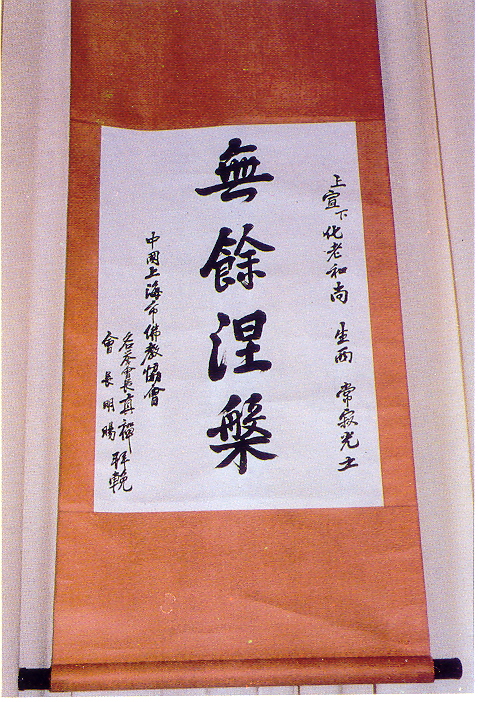 上宣下化老和尚 生西 常寂光土
無餘涅槃
中國上海市佛教協會
名誉會長真禪
會長明暘 拜輓